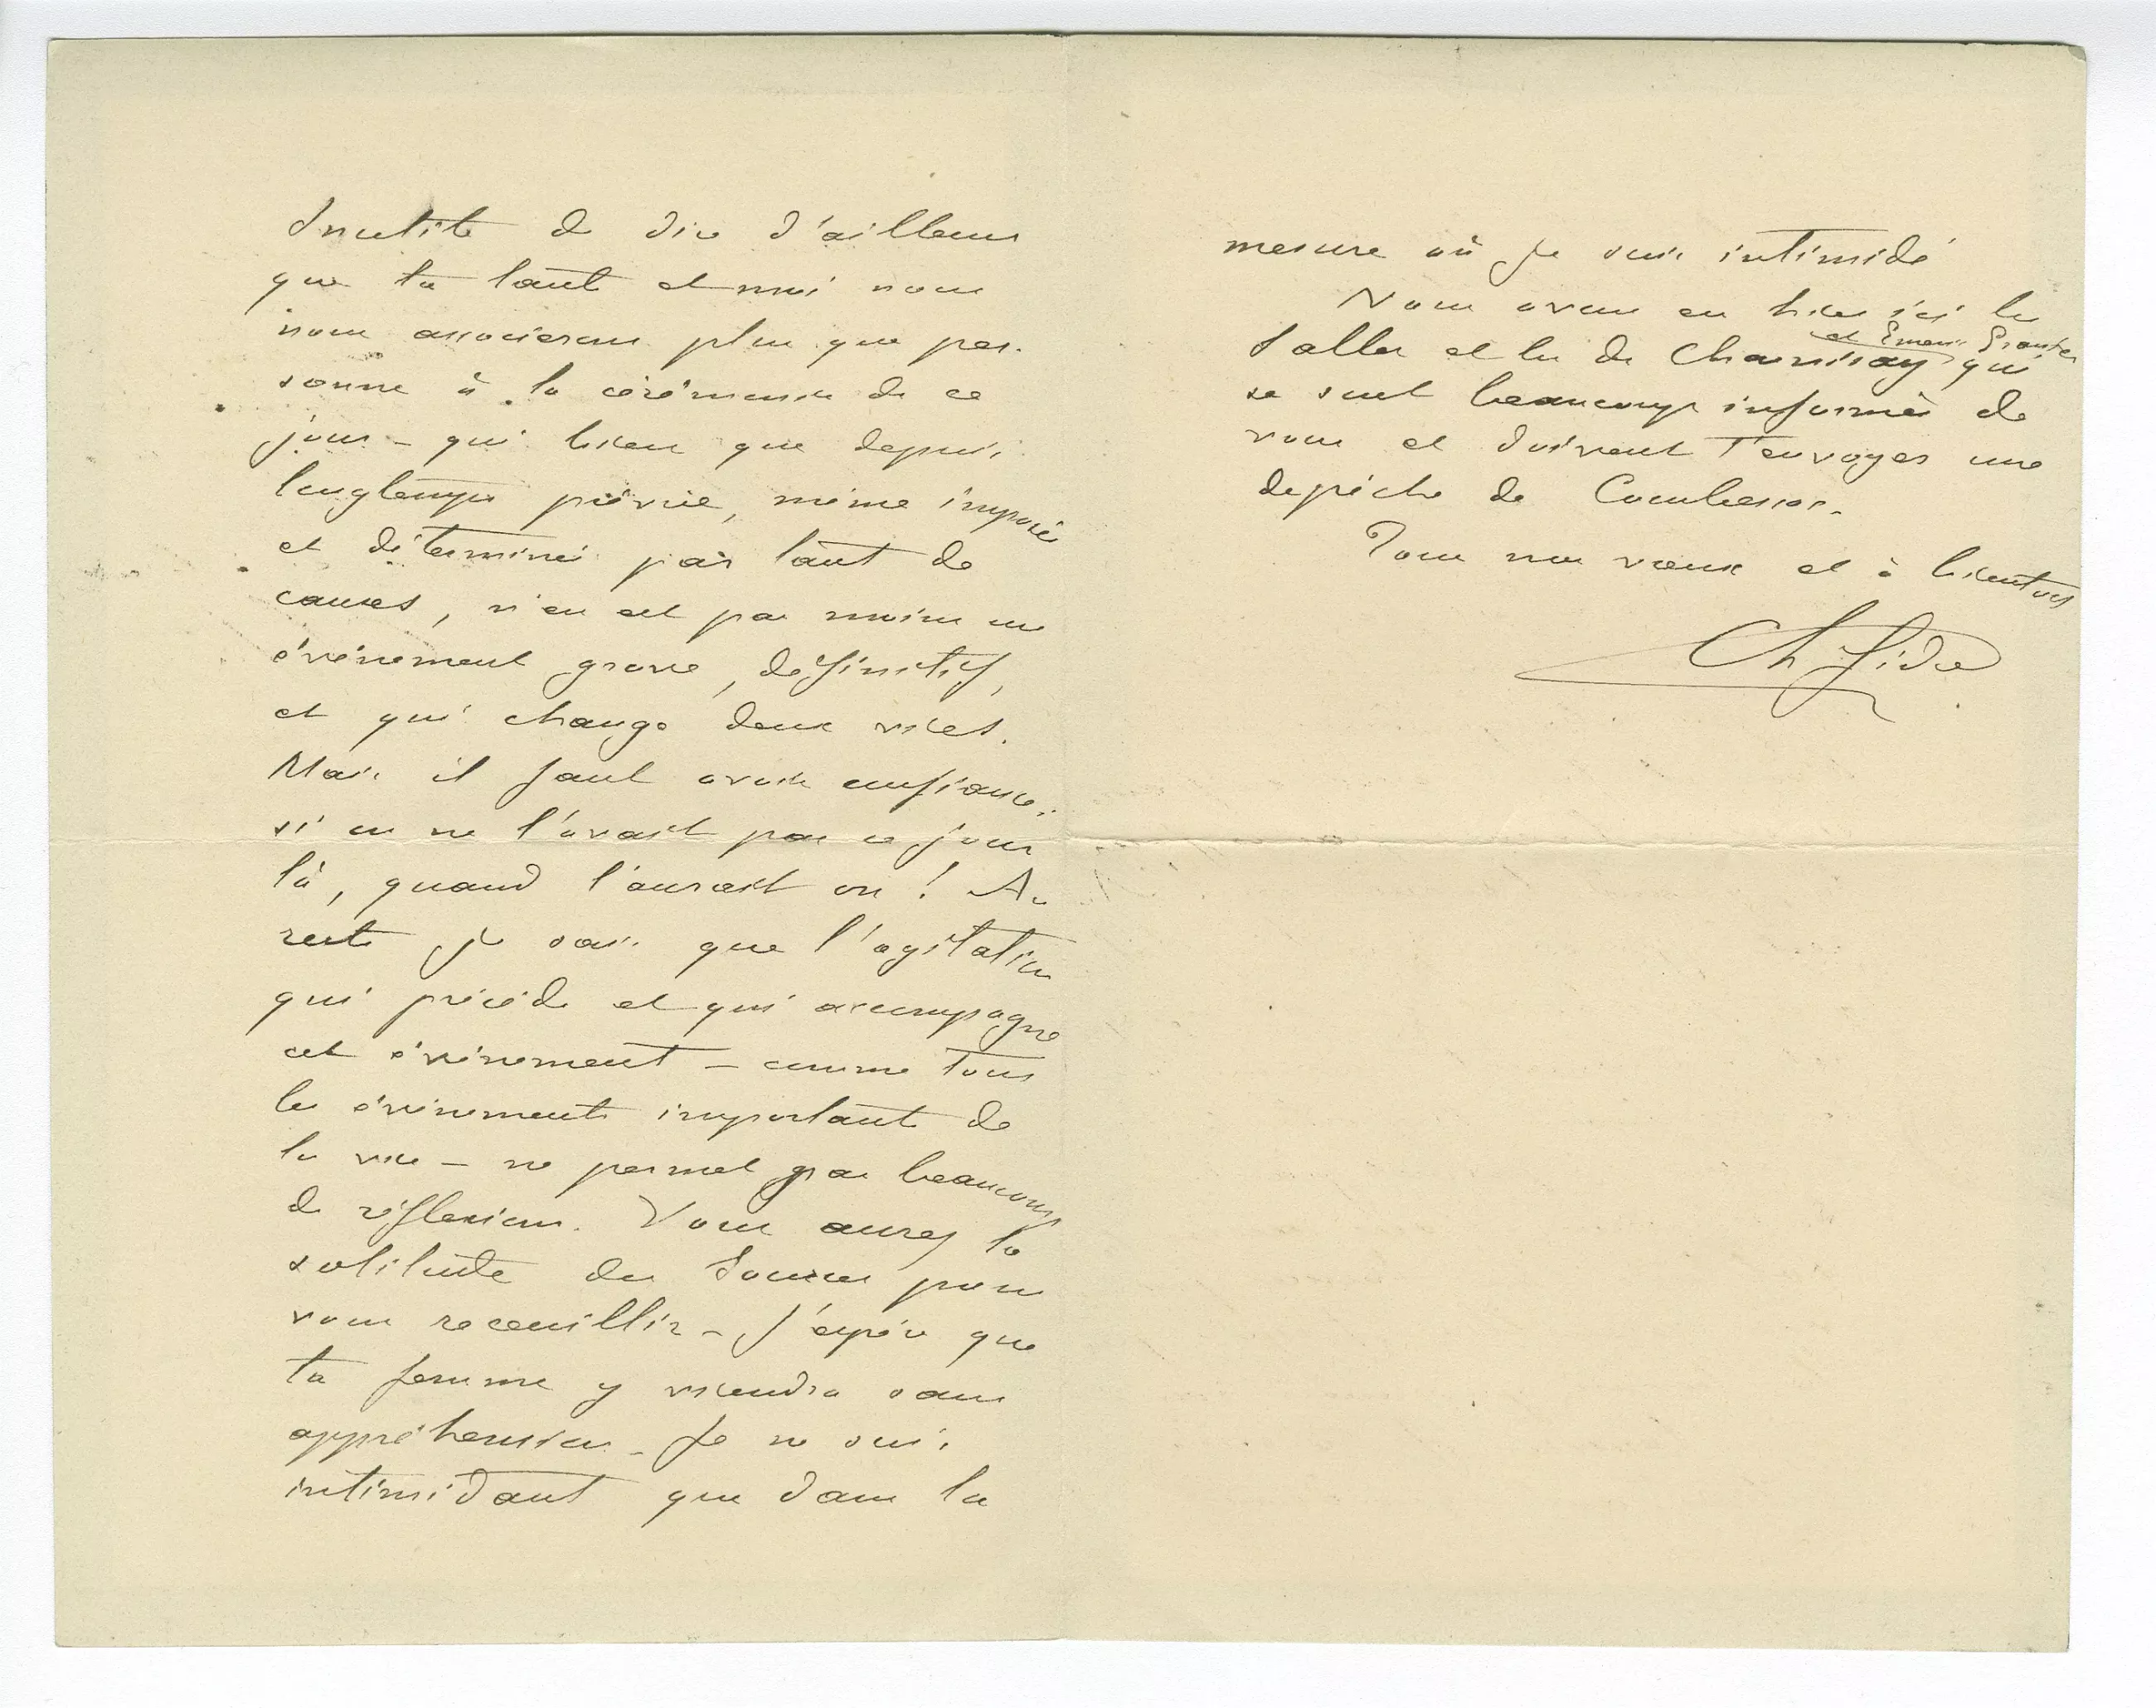 Inutile de dire d'ailleurs
que ta tante et moi nous
nous associerons plus que per-
sonne à la cérémonie de ce
jour – qui bien que depuis
longtemps prévue, même imposée
et déterminée par tant de
causes, n'en est pas moins un
événement grave, définitif,
et qui change deux vies.
Mais il faut avoir confiance:
si on ne l'avait pas ce jour
là, quand l'aurait on! Au
reste je sais que l'agitation
qui précède et qui accompagne
cet événement – comme tous
les événements importants de
la vie – ne permet pas beaucoup
de réflexions. Vous aurez la
solitude des Sources pour
vous recueillir – J'espère que
ta femme y viendra sans
appréhension – Je ne suis
intimidant que dans la
mesure où je suis intimidé
Nous avons eu hier ici les
Salles et les de Charnisay et qui
se sont beaucoup informés de
vous et doivent t'envoyer une
dépêche de
Tous nos vœux et à bientôt
Ch Gide